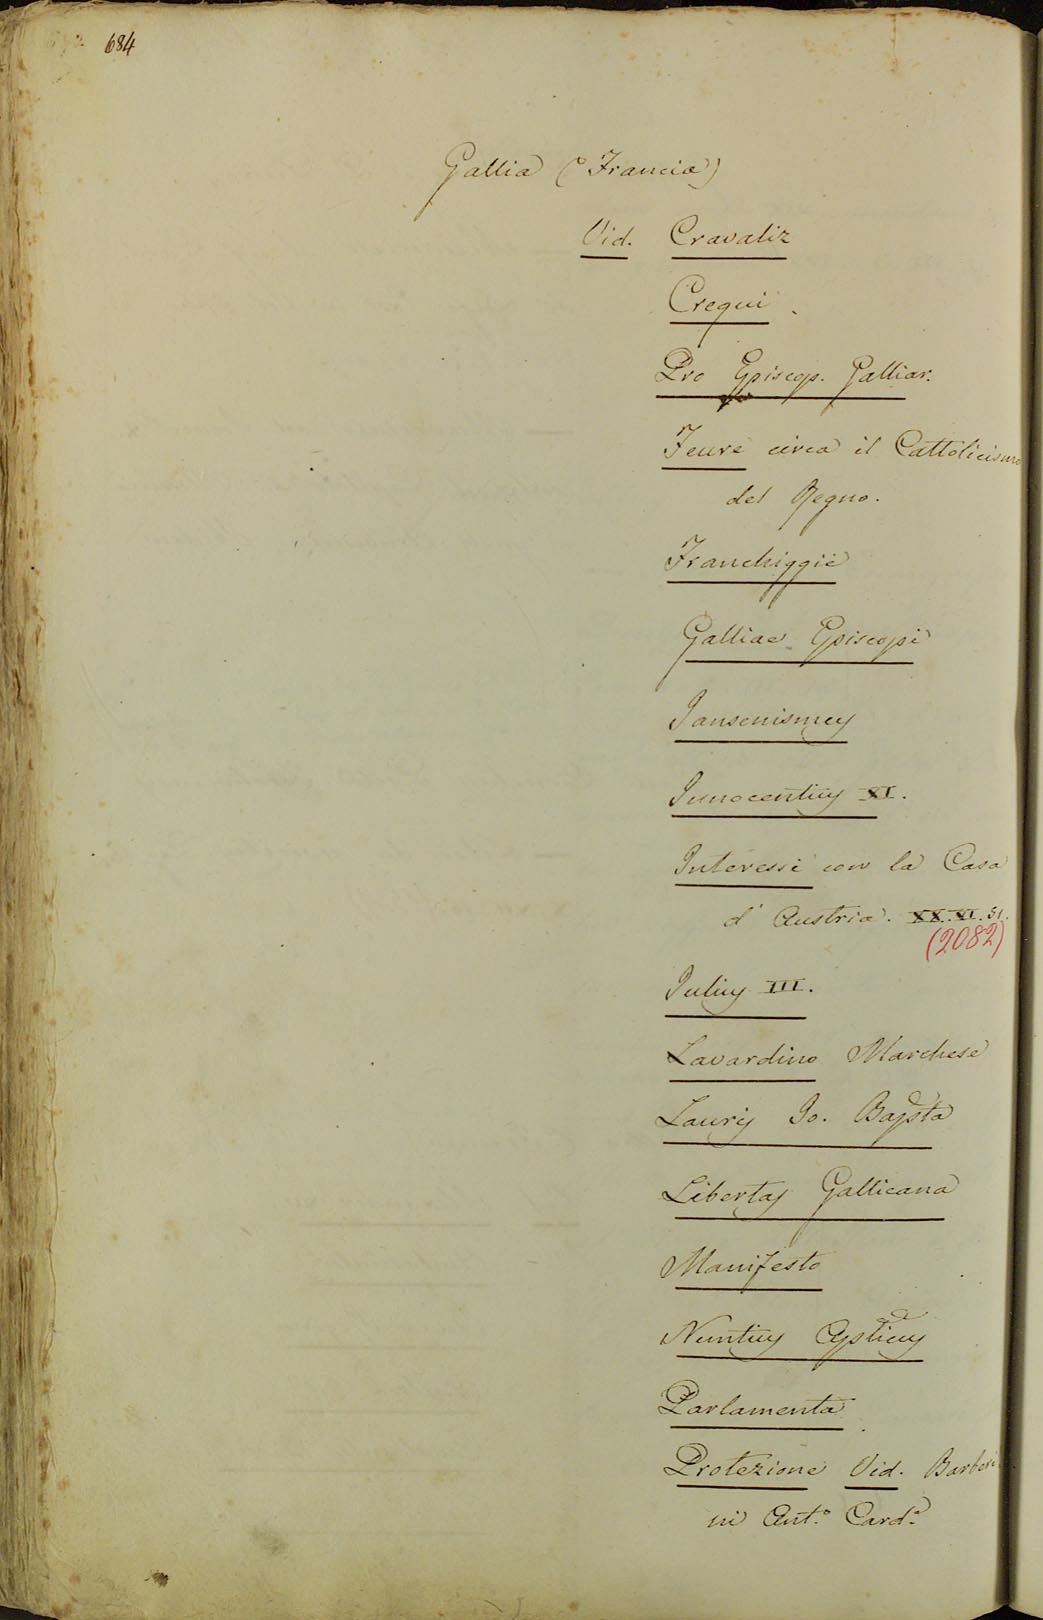 684
Gallia (o Francia)
Vid. Cravaliz
Crequi.
Pro Episcop. Galliar.
circa il Cattolicismo
del Regno.
Franchiggie
Galliae Episcopi
Jansenismus
Innocentius XI.
Interessi con la Casa
d'Austria. XX. VI. 51.
(2082)
Julius III.
Lavardino Marchese
Laurus Jo. Bapsta
Libertas Gallicana
Manifesto
Nuntius Apsticus
Parlamenta
Protezione Vid. Barberi
ni Ant.o Card.e